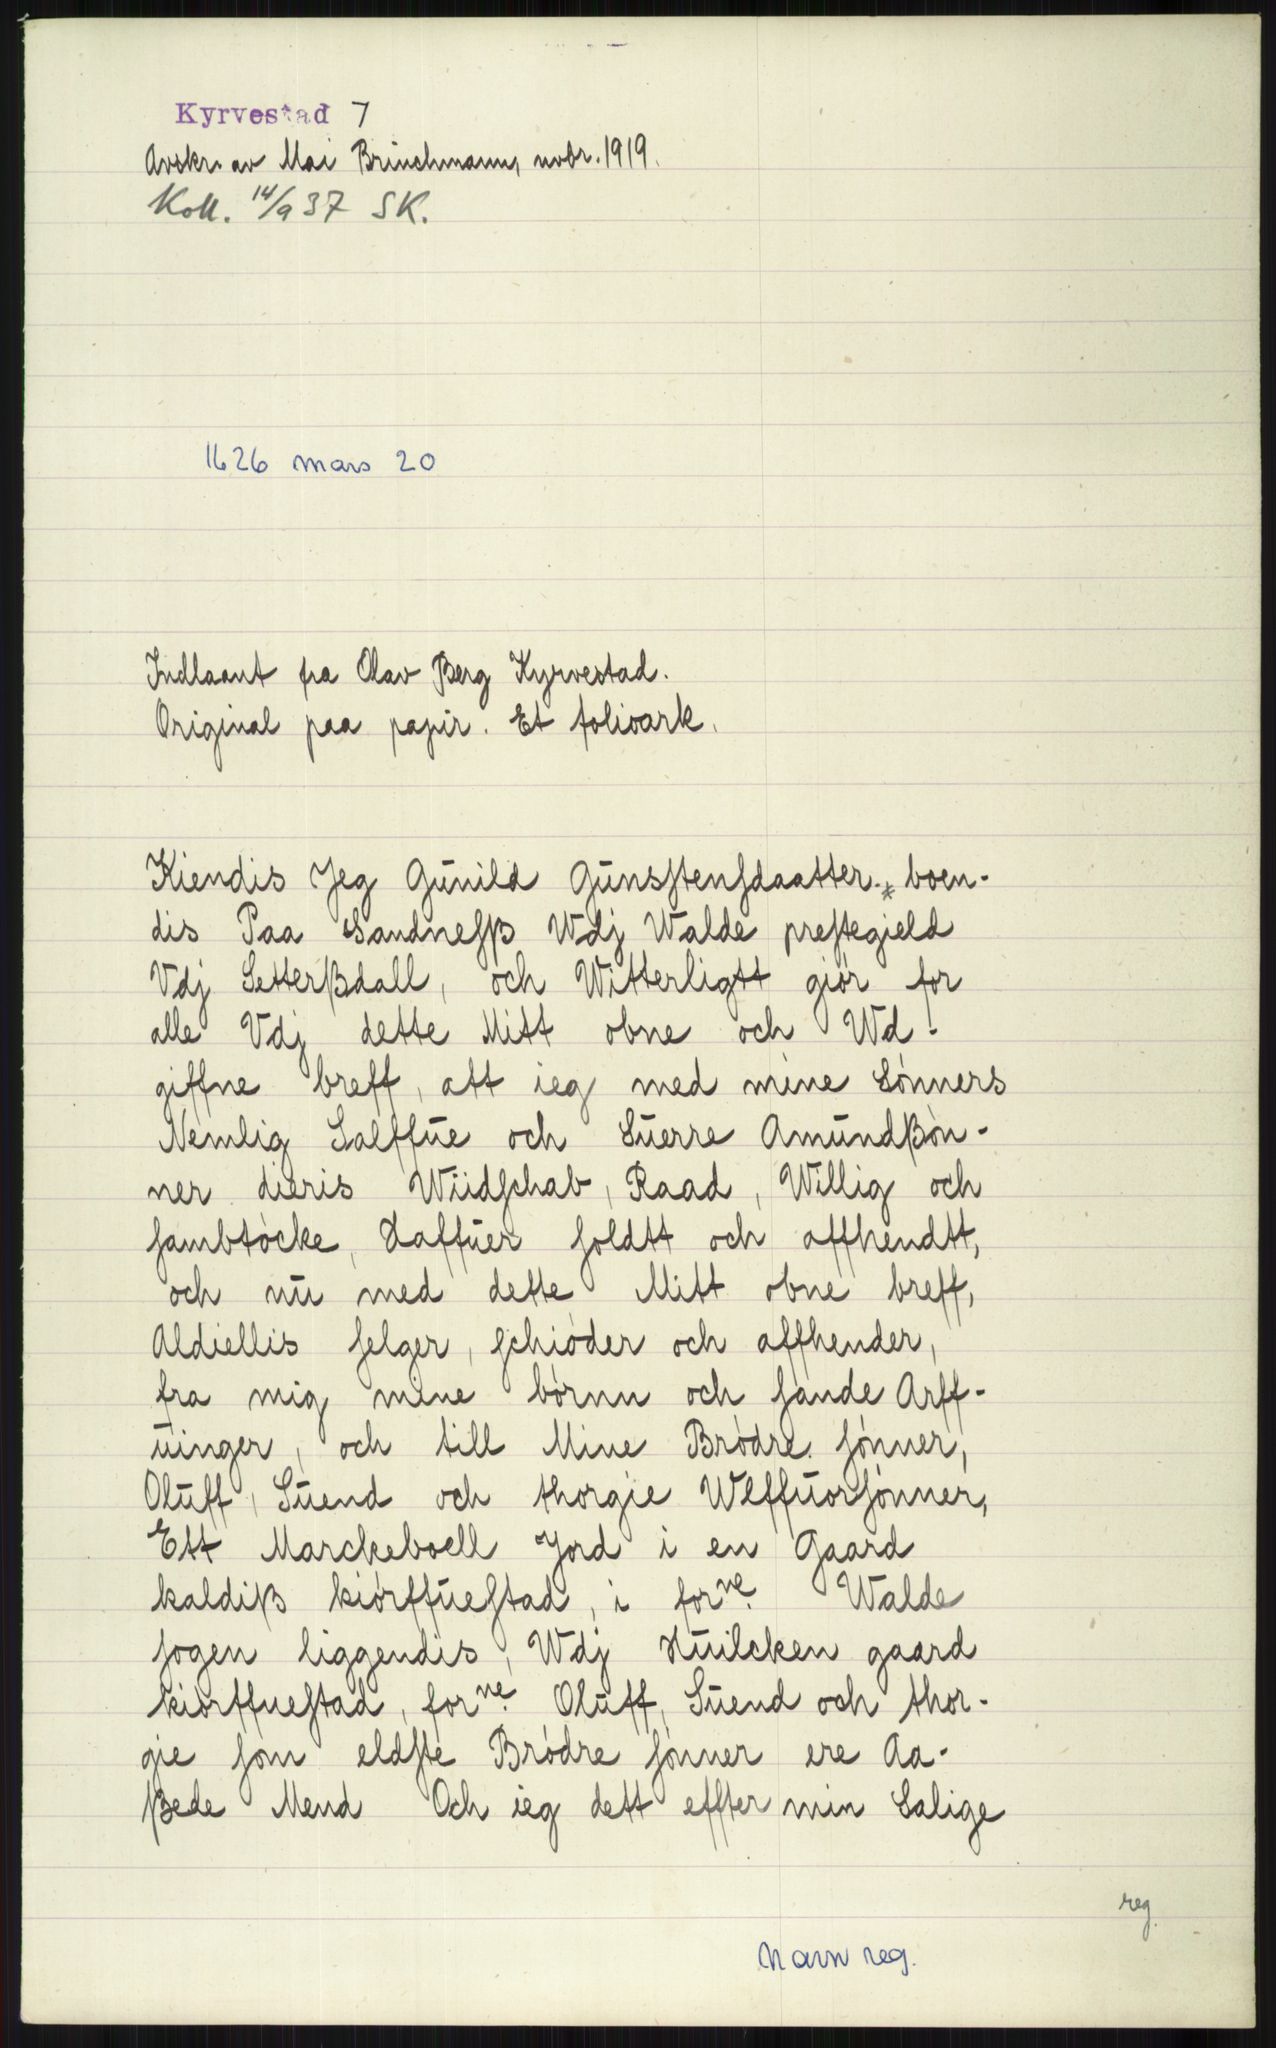 Kyrvestad 7
Avskr. av Mai Brinchmann, nvbr. 1919.
Koll. 14/9 37 SK.
1626 mars 20
Indlaant fra Olav Berg Kyrvestad.
Original paa papir. Et folioark.
Kiendis Jeg Gūnild Gūnsſtenſdaatter.* boen-
dis Paa Sandneſß Wdj Walde preſtegield
Vdj Setterßdall, och Witterligtt giór for
alle Vdj dette Mitt obne och Wd!
giffne breff, att ieg med mine Sónners
Nemlig Salffūe och Sūerre Amūndßón-
ner dieris Wiidſchab, Raad, Willig och
ſambtócke, Haffūer ſoldtt och affhendtt,
och nū med dette Mitt obne breff,
Aldiellis ſelger, ſchióder och affhender,
fra mig mine bórnn och ſande Arff-
ūinger, och till Mine Bródre ſónner,
Olūff, Sūend och thorgie Wlffūorſónner,
Ett Marckeboell Jord i en Gaard
kaldiß kiórffūeſtad, i forne. Walde
ſogen liggendis, Wdj Hūilcken gaard
kiórffueſtad, forne. Olūff, Sūend och thor-
gie ſom eldſte Bródre ſónner ere Aa-
ßede Mend Och ieg dett effter min Salige
reg.
Navn reg.